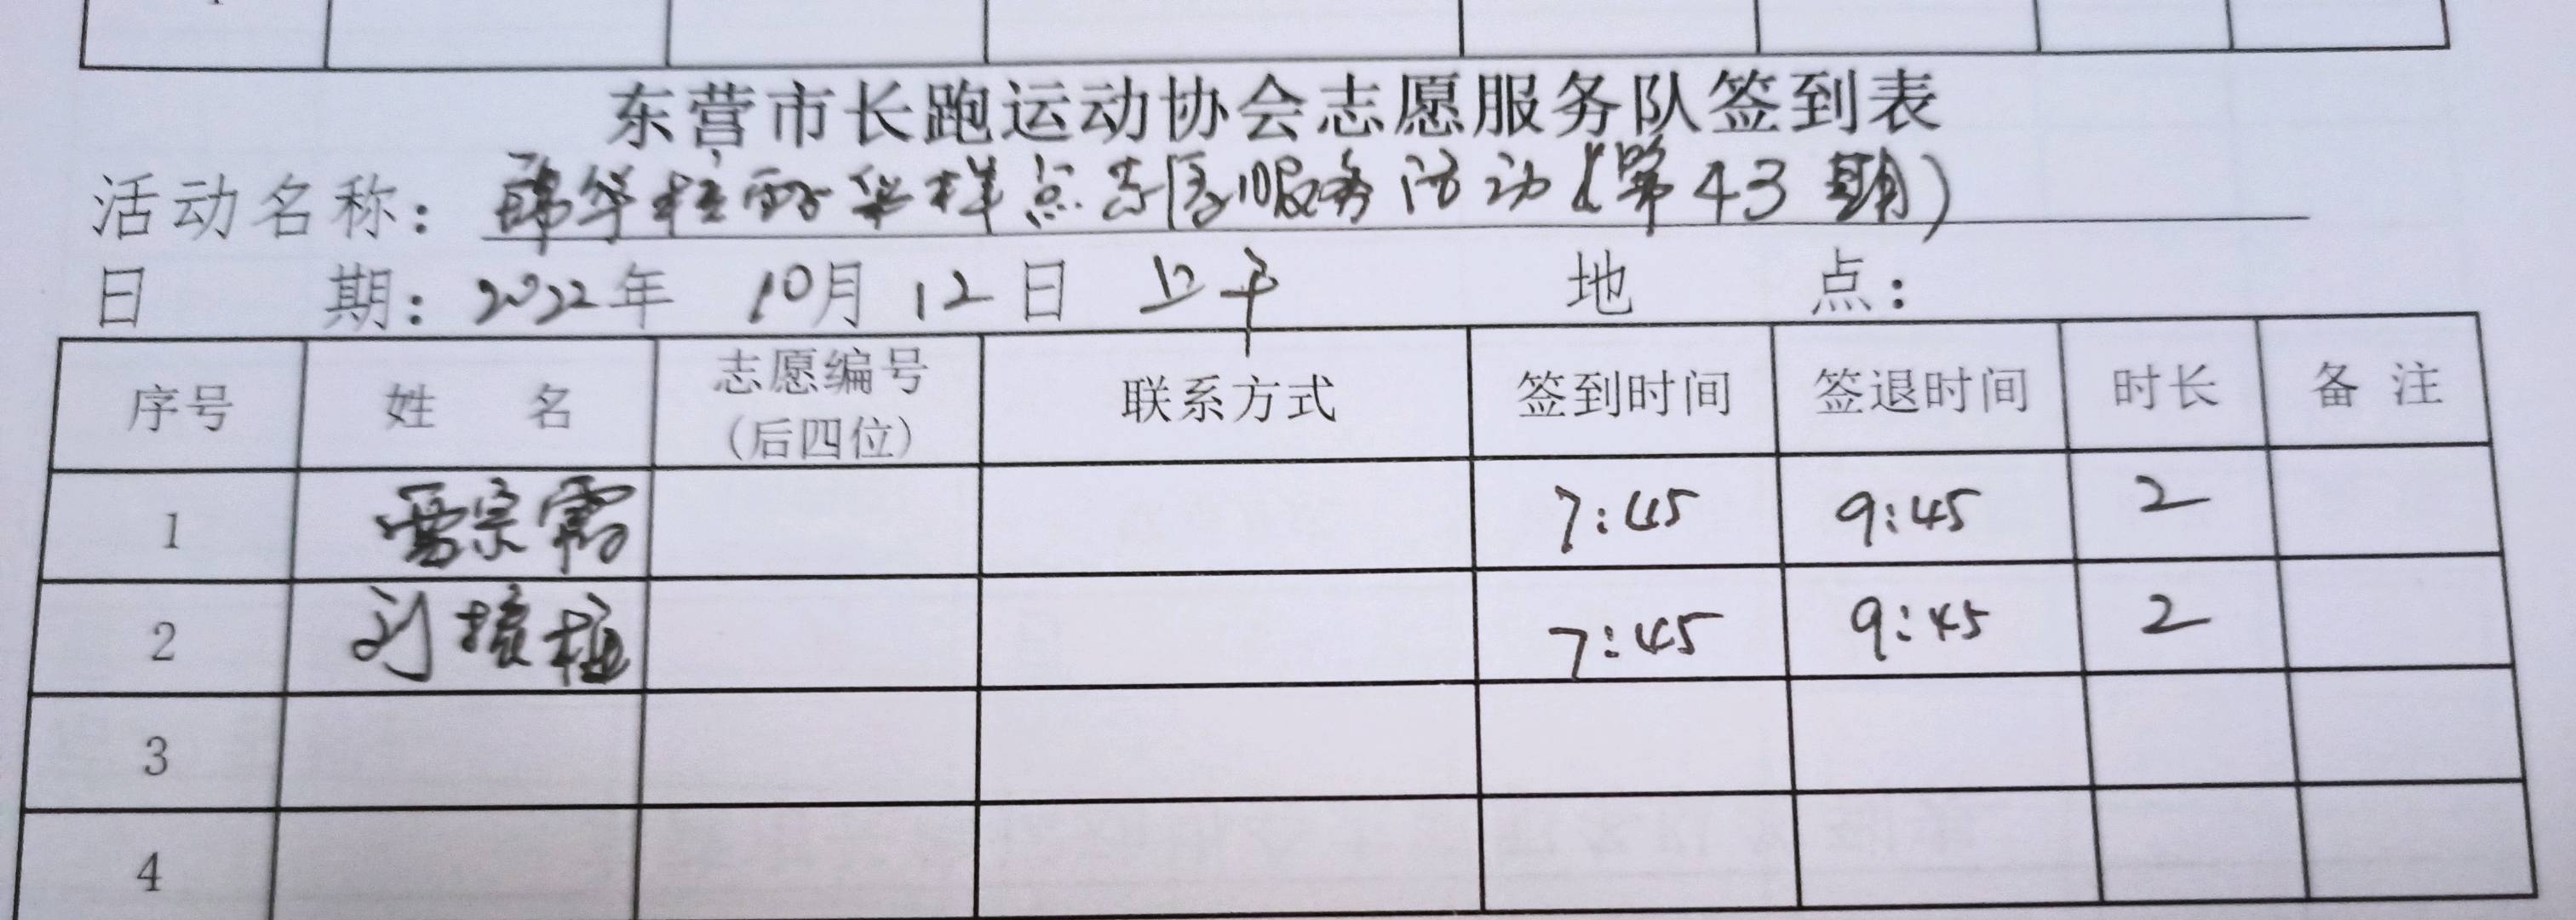 东营市长跑运动协会志愿服务队签到表
活动名称：锦华核酸采样点志愿服务活动（第43期）
日期：2022年10月12日上午 地点：
序号 姓名 志愿编号（后四位） 联系方式 签到时间 签退时间 时长 备注
1 宗霞 7:45 9:45 2
2 刘振 7:45 9:45 2
3
4